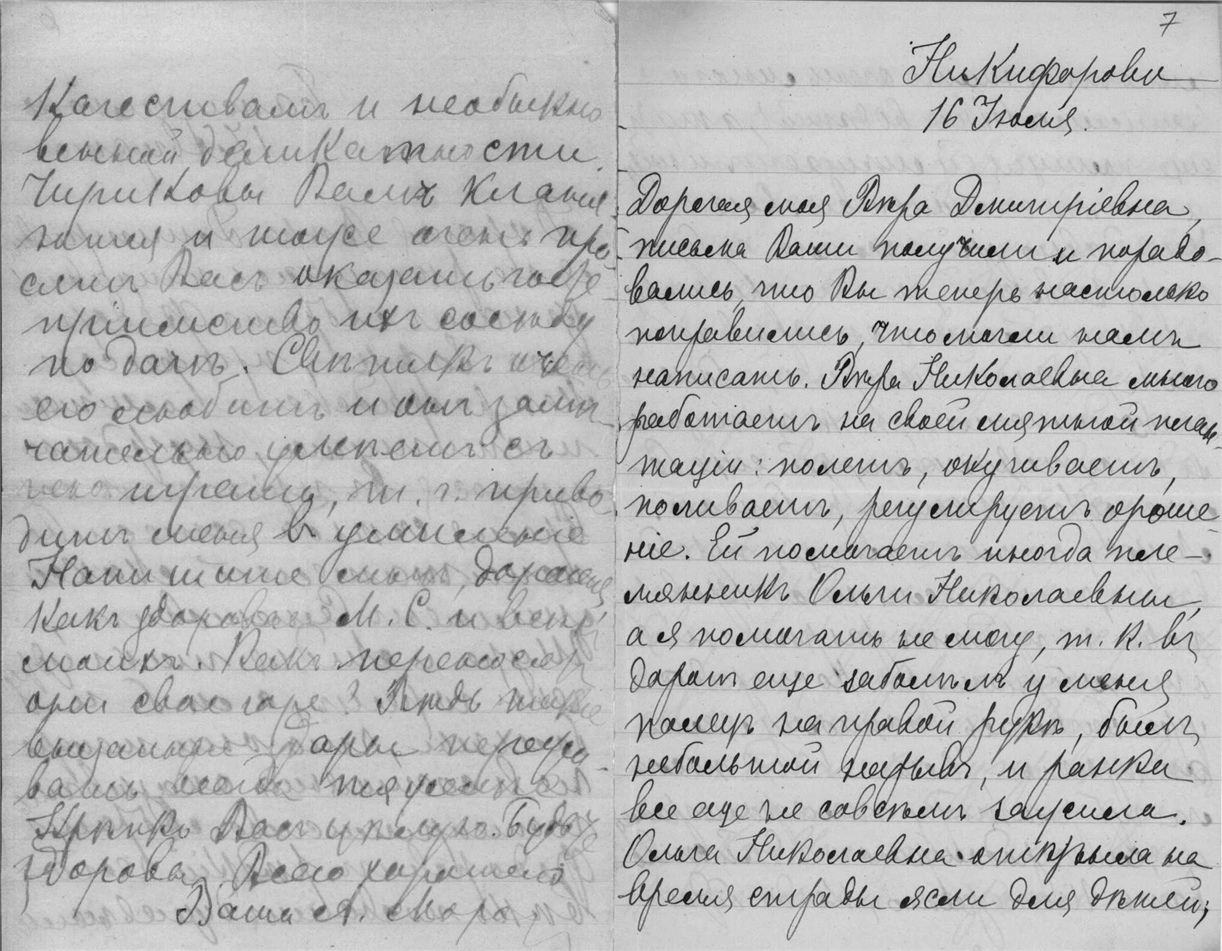 качествамъ и необыкно
венной деликатности
Чириковы Вамъ кланя-
ются и тоже очень про-
сятъ Васъ оказать госте-
приимство ихъ сосѣду
по дачѣ.
его любитъ и онъ замѣ-
чательно умѣетъ съ
т. ч. приво
дитъ меня въ умиленіе
Напишите мнѣ, дорогая,
какъ здоровье М. С. и
Какъ переносятъ
они свое горе? Вѣдь такіе
внезапные удары пережи-
вать всегда тяжело
Крѣпко Васъ цѣлую. Будьте
здоровы. Всего хорошего
Ваша А.
7
Никифорово
16 Іюля.
Дорогая моя Вѣра Дмитріевна,
письма Ваши получили и порадо-
вались, что Вы теперь настолько
поправились, что могли намъ
написать. Вѣра Николаевна много
работаетъ на своей мятной план-
таціи: полетъ, окучиваетъ,
поливаетъ, регулируетъ ороше
ніе. Ей помогаетъ иногда пле-
мянникъ Ольги Николаевны,
а я помогать не могу, т. к. въ
дорогѣ еще заболѣлъ у меня
палецъ на правой рукѣ, былъ
небольшой нарывъ, и ранка
все еще не совсѣмъ зажила.
Ольга Николаевна открыла на
время страды ясли для дѣтей,